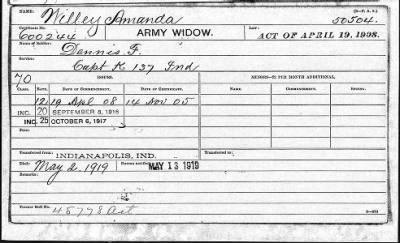 (D-P. A. G.)
NAME: Willey Amanda 50504.
Certificate: 600244 ARMY WIDOW. ACT OF APRIL 19, 1908.
Name of Soldier: Dennis F.
Service: Capt K. 137 Ind
70 ISSUE. MINORS—$2 PER MONTH ADDITIONAL.
CLASS. RATE. DATE OF COMMENCEMENT. DATE OF CERTIFICATE. NAME. COMMENCED. EXPIRES.
12 19 Apl 08 14 Nov 05
INC. 20 SEPTEMBER 8, 1916
INC. 25 OCTOBER 6, 1917
From:
Transferred from: INDIANAPOLIS, IND. Transferred to:
Died: May 2, 1919 Bureau notified: MAY 13 1919
Former Roll No. 45778 Act